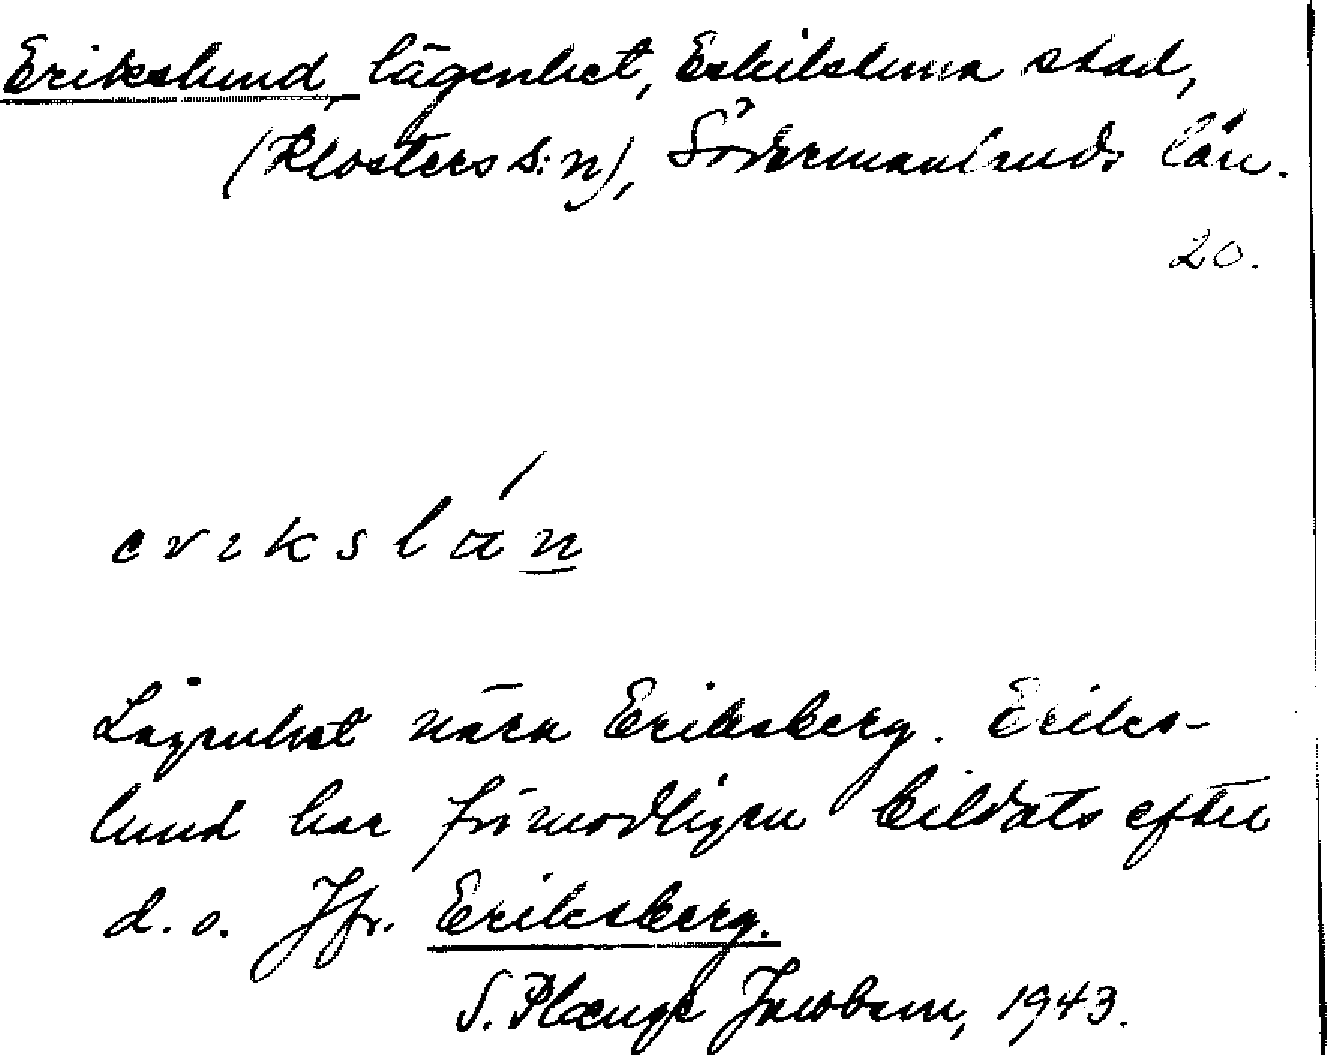 Erikslund, lägenhet, Eskilstuna stad,
(Klosters s:n), Södermanlands län.
20.
erikslán
Lägenhet nära Eriksberg. Eriks-
lund har förmodligen bildats efter
d. o. Jfr. Eriksberg.
S. Plænge Jacobsen, 1943.